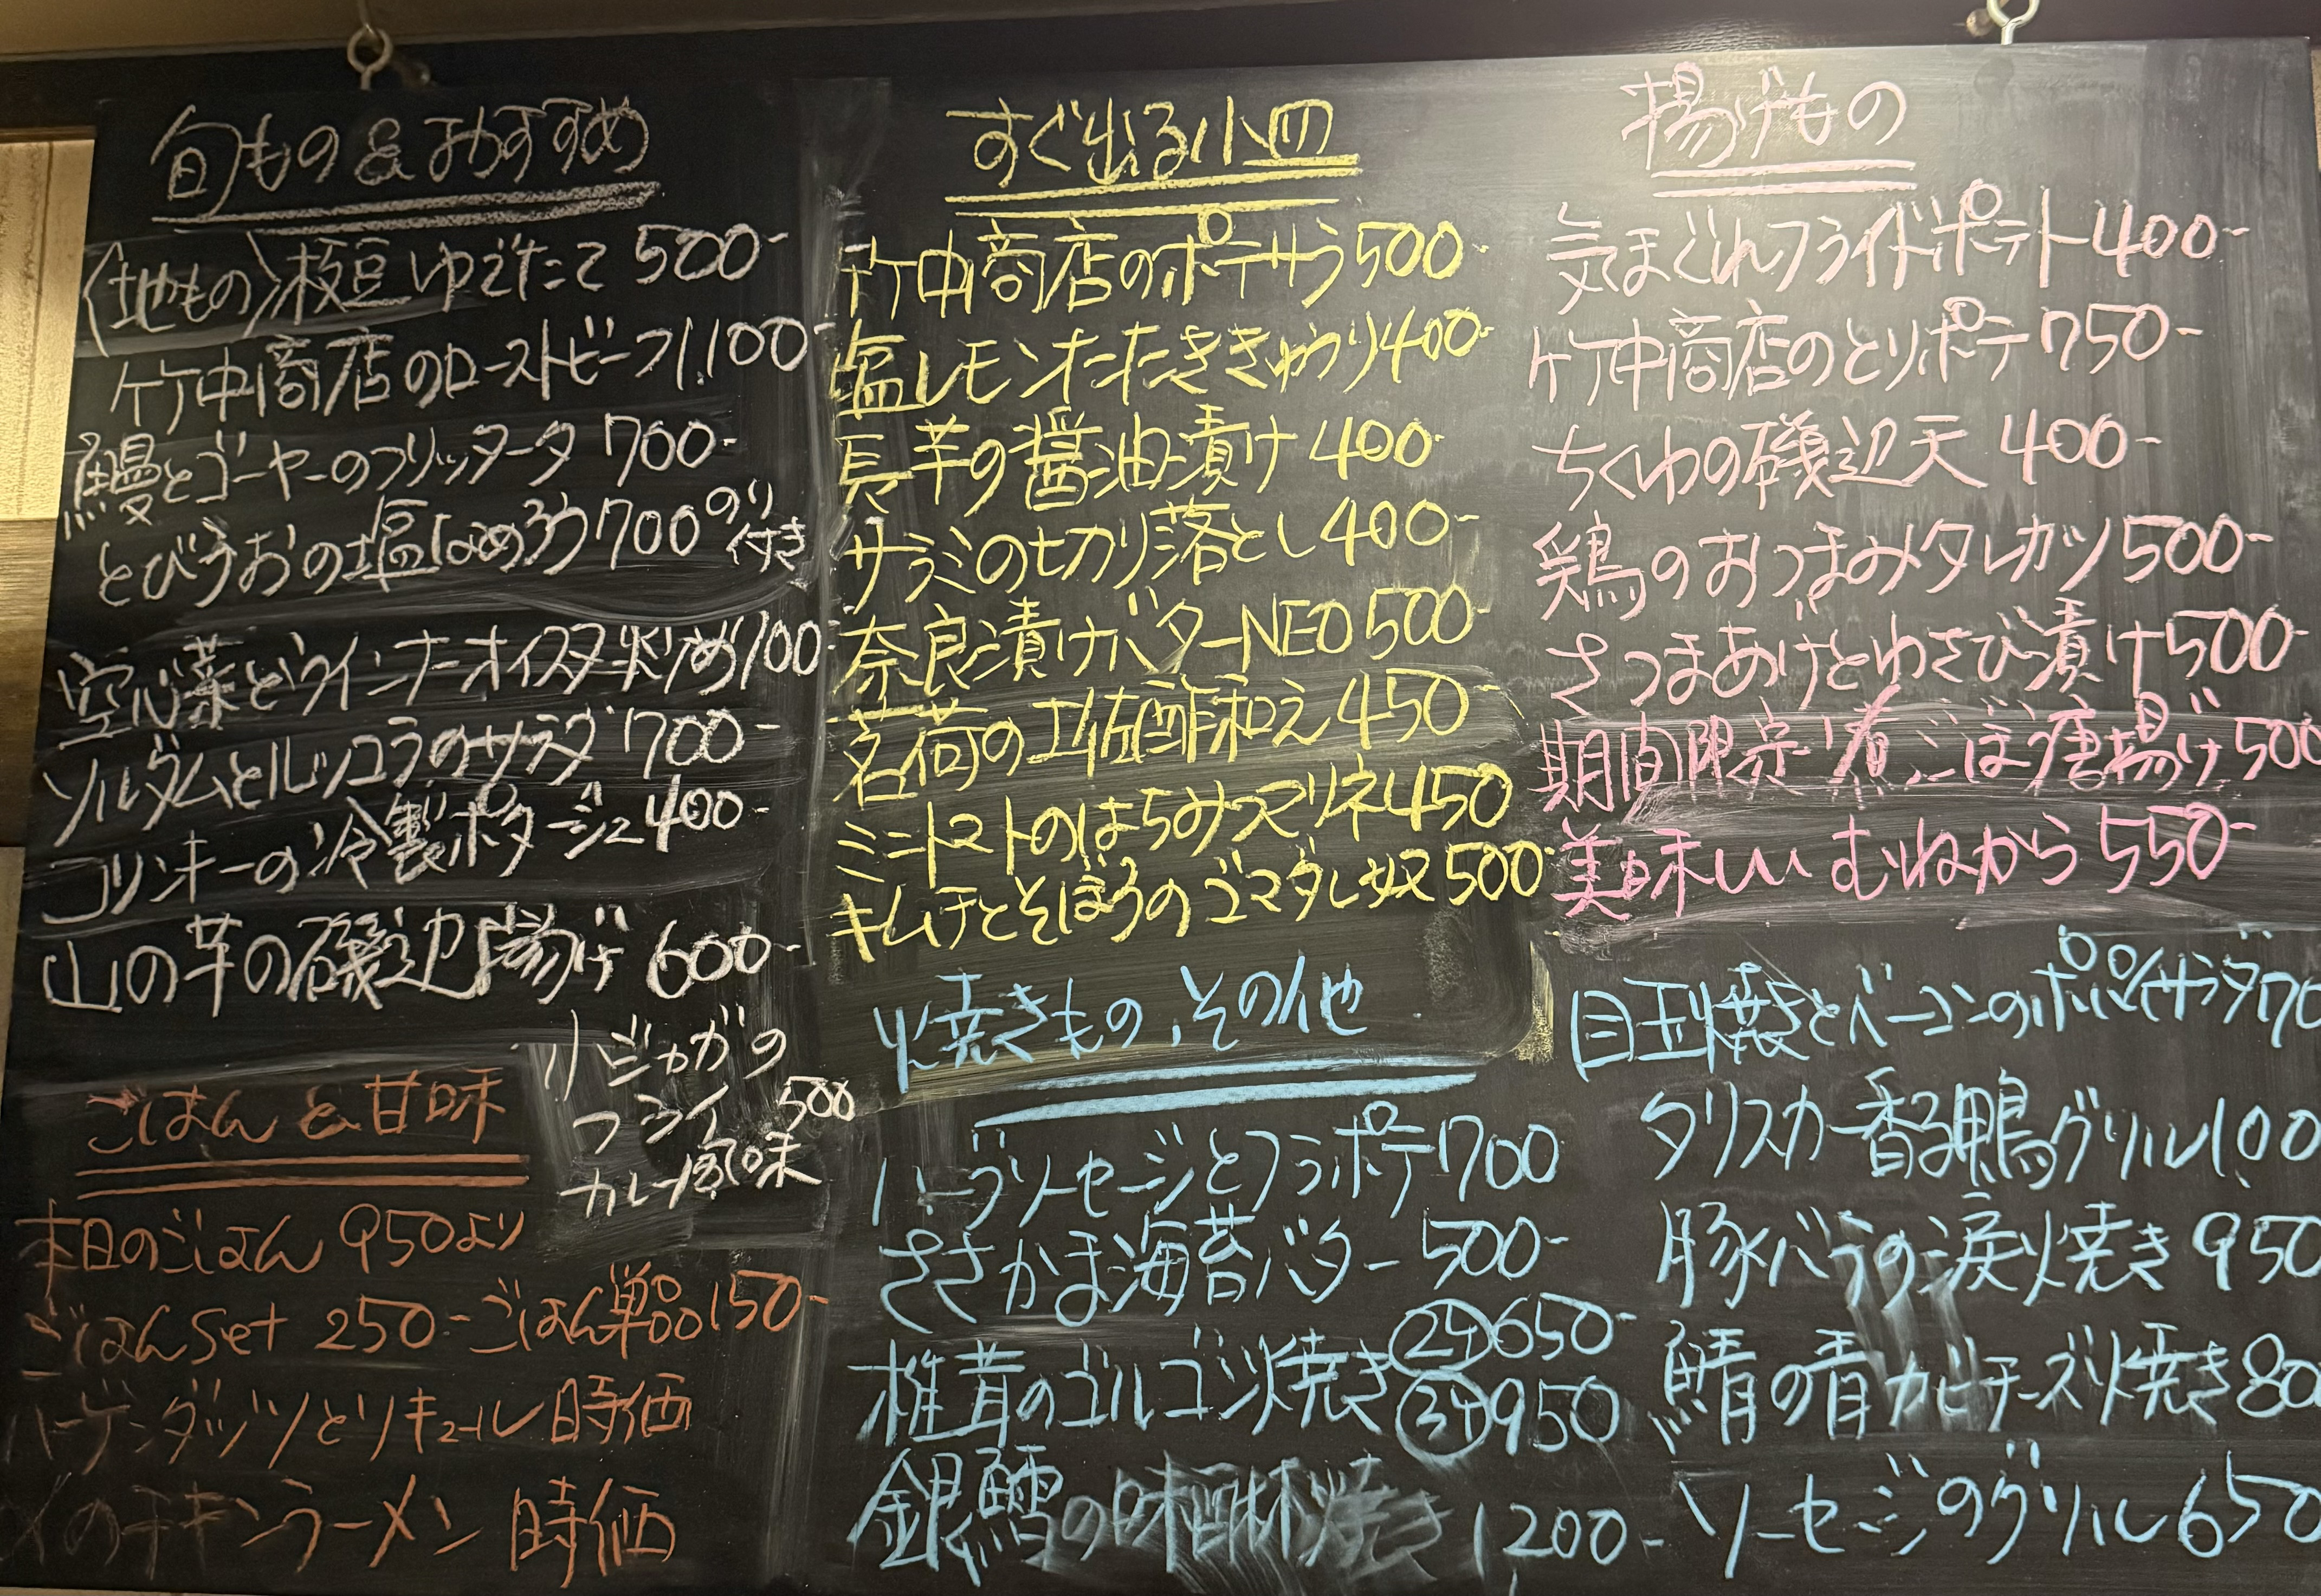 旬もの&おすすめ
〈地もの〉枝豆 ゆでたて 500-
竹中商店のローストビーフ 1,100-
鰻とゴーヤーのフリッタータ 700-
とびうおの塩なめろう 700 のり付き
空心菜とウインナーオイスタ炒め 700-
ソルダムとルッコラのサラダ 700-
コリンキーの冷製ポタージュ 400-
山の芋の磯辺揚げ 600-
小ジャガの
フライ 500
カレー風味
ごはんと甘味
本日のごはん 950より
ごはんset 250- ごはん単品 150-
ハーゲンダッツとリキュール 時価
〆のチキンラーメン 時価
すぐ出る小皿
竹中商店のポテサラ 500-
塩レモンオーたたききゅうり 400-
長芋の醤油漬け 400-
サラミの切り落とし 400-
奈良漬けバターNEO 500-
茗荷の土佐酢和え 450-
ミニトマトのはちみつマリネ 450
キムチとそぼろのゴマダレ奴 500-
焼きもの、その他
ハーブソーセージとフラポテ 700
ささかま海苔バター 500-
椎茸のゴルゴン焼き ②ケ 650-
③ケ 950
銀鱈の味醂焼き 1200-
揚げもの
気まぐれフライドポテト 400-
竹中商店のとりポテ 750-
ちくわの磯辺天 400-
鶏のおつまみタレカツ 500-
さつまあげとわさび漬け 500-
期間限定 煮ごぼう唐揚げ 500
美味しい むねから 550-
目玉焼きとベーコンのポパイサラダ 70
タリスカー香る鴨グリル 1,100
豚バラの涙焼き 950
鯖の青カビチーズ焼き 80
ソーセージのグリル 650